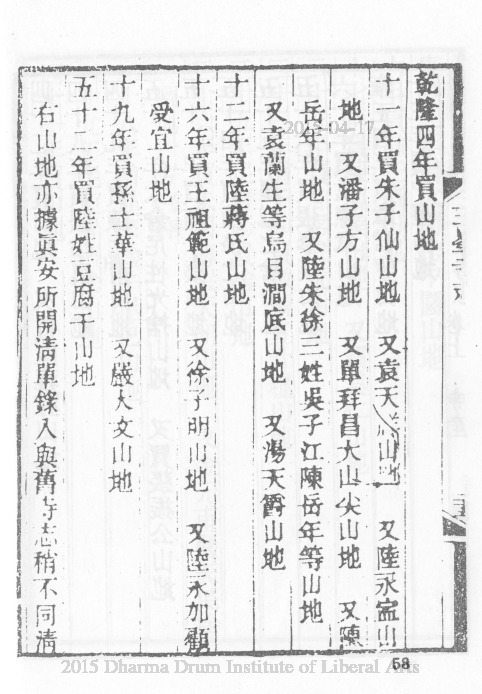 乾隆四年買山地
十一年買朱子仙山地 又袁天 山地 又陸永 山
地 又潘子方山地 又單拜昌大山尖山地 又陳
岳年山地 又陸朱徐三姓吳子江陳岳年等山地
又袁蘭生等烏目澗底山地 又湯天爵山地
十二年買陸蔣氏山地
十六年買王祖範山地 又徐子明山地 又陸永加顧
受宜山地
十九年買孫士華山地 又嚴大文山地
五十二年買陸姓豆腐干山地
右山地亦據眞安所開清單錄入與舊寺志稍不同清
58
2015-04-17
2015 Dharma Drum Institute of Liberal Arts